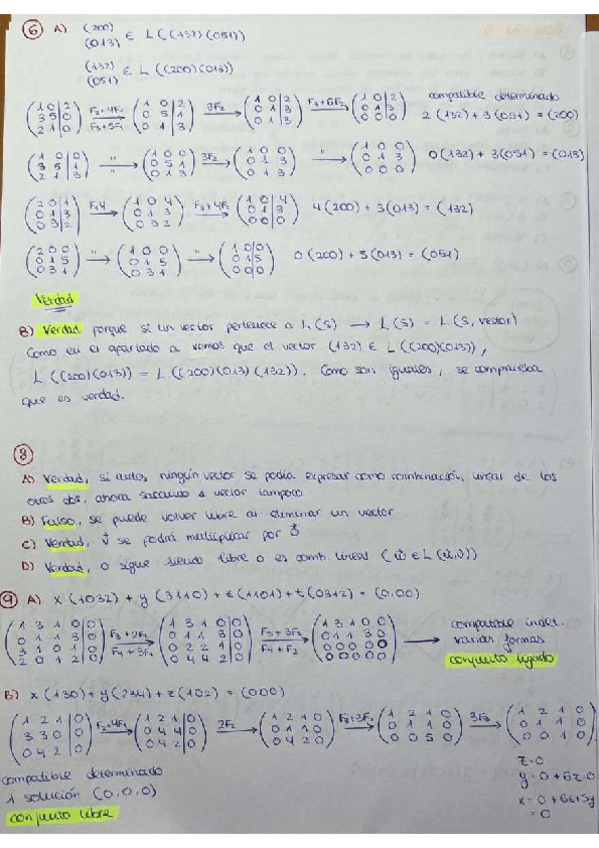 6 A) (200)
(013) ∈ L((132)(051))
(132)
(051) ∈ L((200)(013))
(1 0 | 2 / 3 5 | 0 / 2 1 | 0) F2+4F1 F3+5F1 → (1 0 | 2 / 0 5 | 1 / 0 1 | 3) 3F2 → (1 0 | 2 / 0 1 | 3 / 0 1 | 3) F3+6F2 → (1 0 | 2 / 0 1 | 3 / 0 0 | 0) compatible determinado
2(132) + 3(051) = (200)
(1 0 | 0 / 3 5 | 1 / 2 1 | 3) " → (1 0 | 0 / 0 5 | 1 / 0 1 | 3) 3F2 → (1 0 0 / 0 1 3 / 0 1 3) " → (1 0 0 / 0 1 3 / 0 0 0) 0(132) + 3(051) = (013)
(2 0 | 1 / 0 1 | 3 / 0 3 | 2) F1 4 → (1 0 4 / 0 1 3 / 0 3 2) F3+4F2 → (1 0 | 4 / 0 1 | 3 / 0 0 | 0) 4(200) + 3(013) = (132)
(2 0 0 / 0 1 5 / 0 3 1) " → (1 0 0 / 0 1 5 / 0 3 1) " → (1 0 | 0 / 0 1 | 5 / 0 0 | 0) 0(200) + 5(013) = (051)
Verdad
B) Verdad porque si un vector pertenece a L(S) → L(S) = L(S, vector)
Como en el apartado a vemos que el vector (132) ∈ L((200)(013)),
L((200)(013)) = L((200)(013)(132)). Como son iguales, se comprueba
que es verdad.
8
A) Verdad, si antes ningún vector se podía expresar como combinación lineal de los
otros dos, ahora sacando 1 vector tampoco
B) Falso, se puede volver libre al eliminar un vector
C) Verdad, v se podrá multiplicar por
D) Verdad, o sigue siendo libre o es comb. lineal
9 A) x(1032) + y(3110) + z(1101) + t(0312) = (0,00)
(1 3 1 0 | 0 / 0 1 1 3 | 0 / 3 1 0 1 | 0 / 2 0 1 2 | 0) → (1 3 1 0 | 0 / 0 1 1 3 | 0 / 0 2 2 1 | 0 / 0 4 4 2 | 0) F3+3F2 F4+F2 → (1 3 1 0 0 / 0 1 1 3 0 / 0 0 0 0 0 / 0 0 0 0 0) → compatible indet.
varias formas
conjunto ligado
B) x(130) + y(234) + z(102) = (000)
(1 2 1 | 0 / 3 3 0 | 0 / 0 4 2 | 0) F2+4F1 → (1 2 1 | 0 / 0 4 4 | 0 / 0 4 2 | 0) 2F2 → (1 2 1 0 / 0 1 1 0 / 0 4 2 0) F3+3F2 → (1 2 1 0 / 0 1 1 0 / 0 0 5 0) 3F3 → (1 2 1 0 / 0 1 1 0 / 0 0 1 0)
compatible determinado
1 solución (0,0,0)
conjunto libre
z=0
y=0+6z=0
x=0+6z+5y
=0